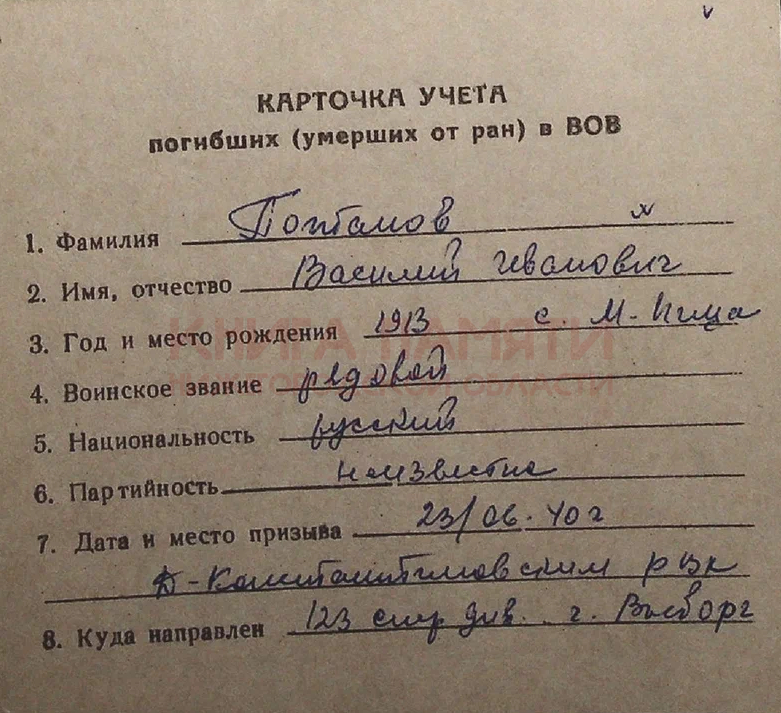 КАРТОЧКА УЧЕТА
погибших (умерших от ран) в ВОВ
1. Фамилия
2. Имя, отчество Василий Иванович
3. Год и место рождения 1913 с. М-Пица
КНИГА ПАМЯТИ
4. Воинское звание рядовой
НИЖЕГОРОДСКОЙ ОБЛАСТИ
5. Национальность русский
6. Партийность неизвестна
7. Дата и место призыва 23/06.40г
Д-Константиновским рвк
8. Куда направлен 123 стр див. г. Выборг